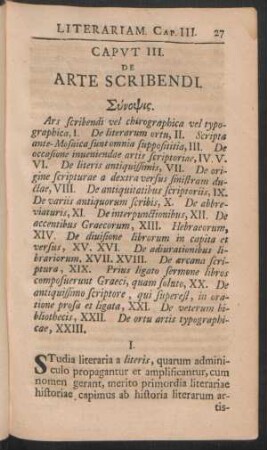 LITERARIAM. CAP. III. 27
CAPVT III.
DE
ARTE SCRIBENDI.
Σύνοψις.
Ars scribendi vel chirographica vel typo-
graphica, I. De literarum ortu, II. Scripta
ante-Mosaica sunt omnia supposititia, III. De
occasione inueniendae artis scriptoriae, IV. V.
VI. De literis antiquissimis, VII. De ori-
gine scripturae a dextra versus sinistram du-
ctae, VIII. De antiquitatibus scriptoriis, IX.
De variis antiquorum scribis, X. De abbre-
viaturis, XI. De interpunctionibus, XII. De
accentibus Graecorum, XIII. Hebraeorum,
XIV. De diuisione librorum in capita et
versus, XV. XVI. De adiurationibus li-
brariorum, XVII. XVIII. De arcana scri-
ptura, XIX. Prius ligato sermone libros
composuerunt Graeci, quam soluto, XX. De
antiquissimo scriptore, qui superest, in ora-
tione prosa et ligata, XXI. De veterum bi-
bliothecis, XXII. De ortu artis typographi-
cae, XXIII.
I.
STudia literaria a literis, quarum admini-
culo propagantur et amplificantur, cum
nomen gerant, merito primordia literariae
historiae capimus ab historia literarum ar-
tis-